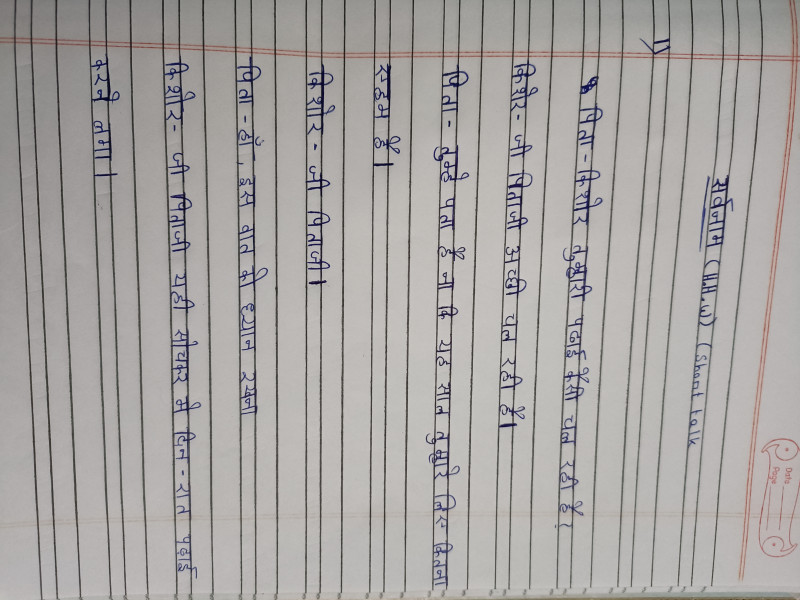 Date
Page
सर्वनाम (H.H.W) (Short talk
1)
पिता - किशोर तुम्हारी पढाई कैसी चल रही है?
किशोर - जी पिताजी अच्छी चल रही है।
पिता - तुम्हे पता है ना कि यह साल तुम्हारे लिए कितना
अहम है।
किशोर - जी पिताजी।
पिता - हाँ, इस बात को ध्यान रखना
किशोर - जी पिताजी यही सोचकर मे दिन - रात पढाई
करने लगा।